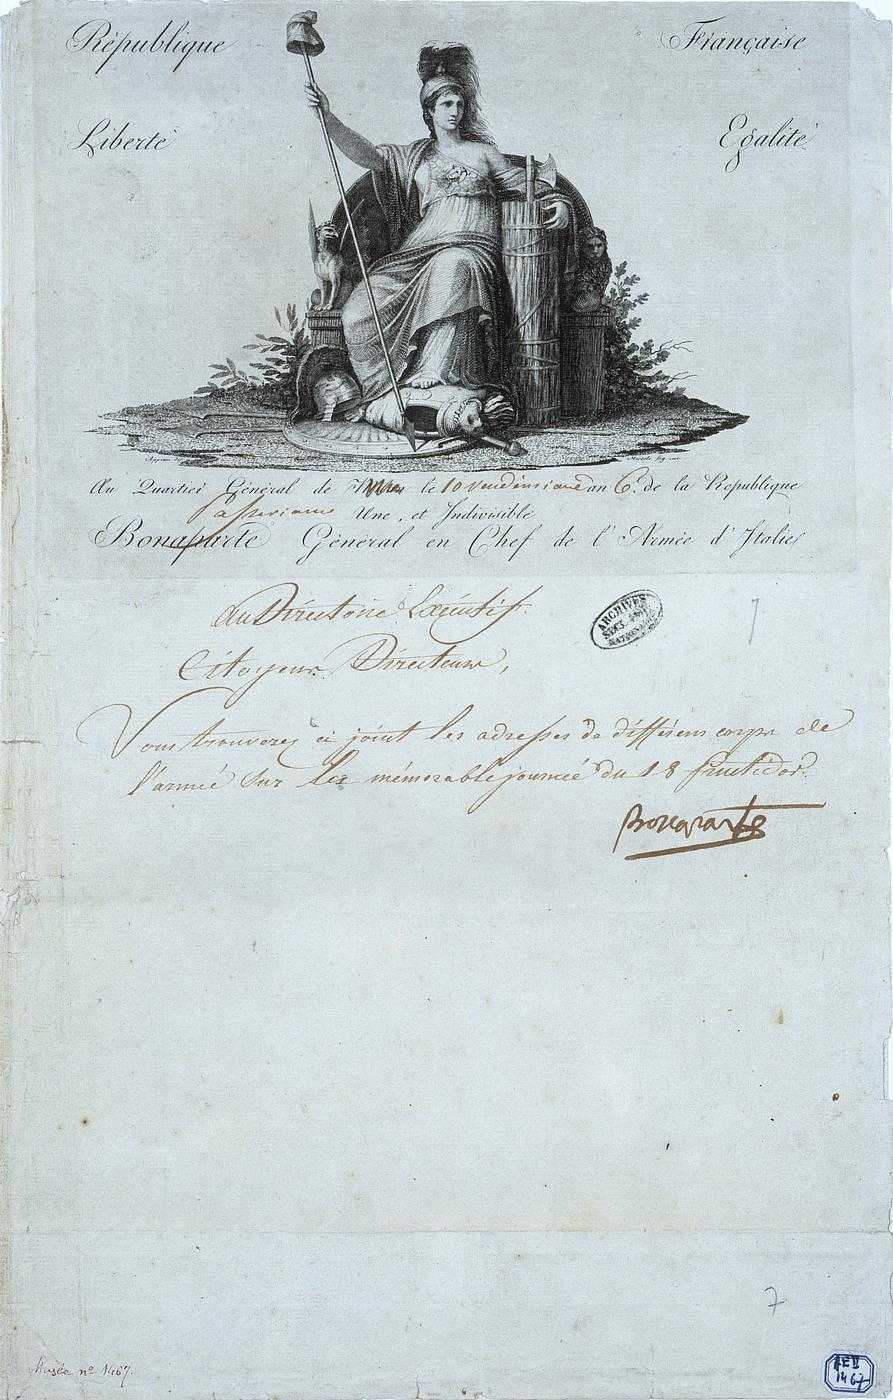 République Française
Liberté Egalité
Au Quartier Général de le 10 vendémiaire an 6.e de la Republique
Passeriano Une, et Indivisible
Bonaparte Général en Chef de l'Armée d'Italie
Au Directoire Exécutif.
Citoyens Directeurs,
Vous trouverez ci joint les adresses de différens corps de
l'armée sur la mémorable journée du 18 fructidor.
Bonaparte
ARCHIVES
NATIONALES
7
7
Musée nº 1467.
AE II
1467